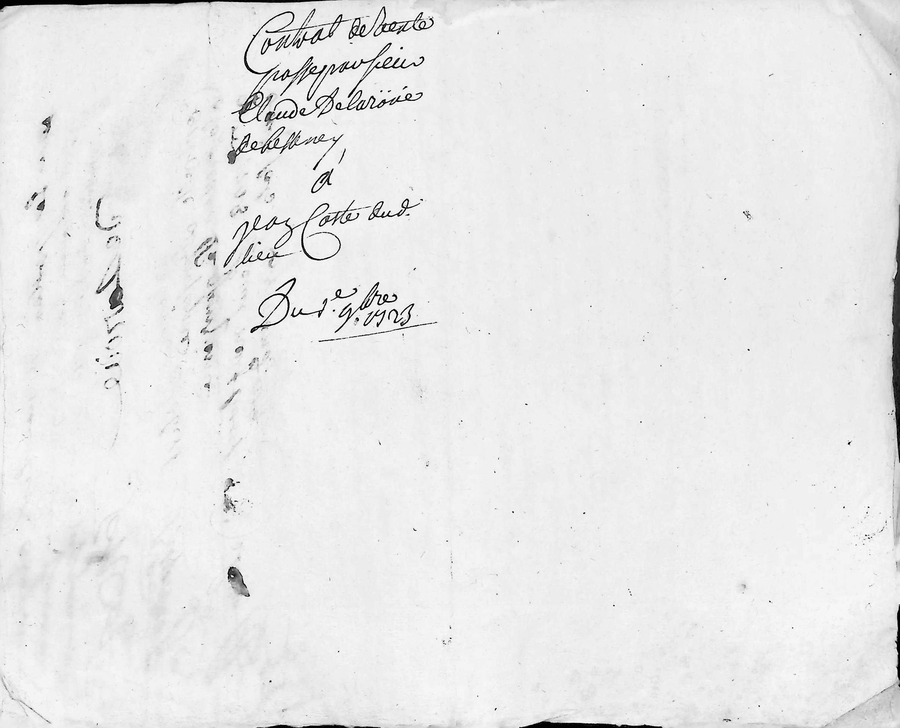 Contrat de vente
passe par sieur
Claude Delaroüe
de besseney
a
jean Coste dud.
lieu
Du 1.e 9.bre 1723